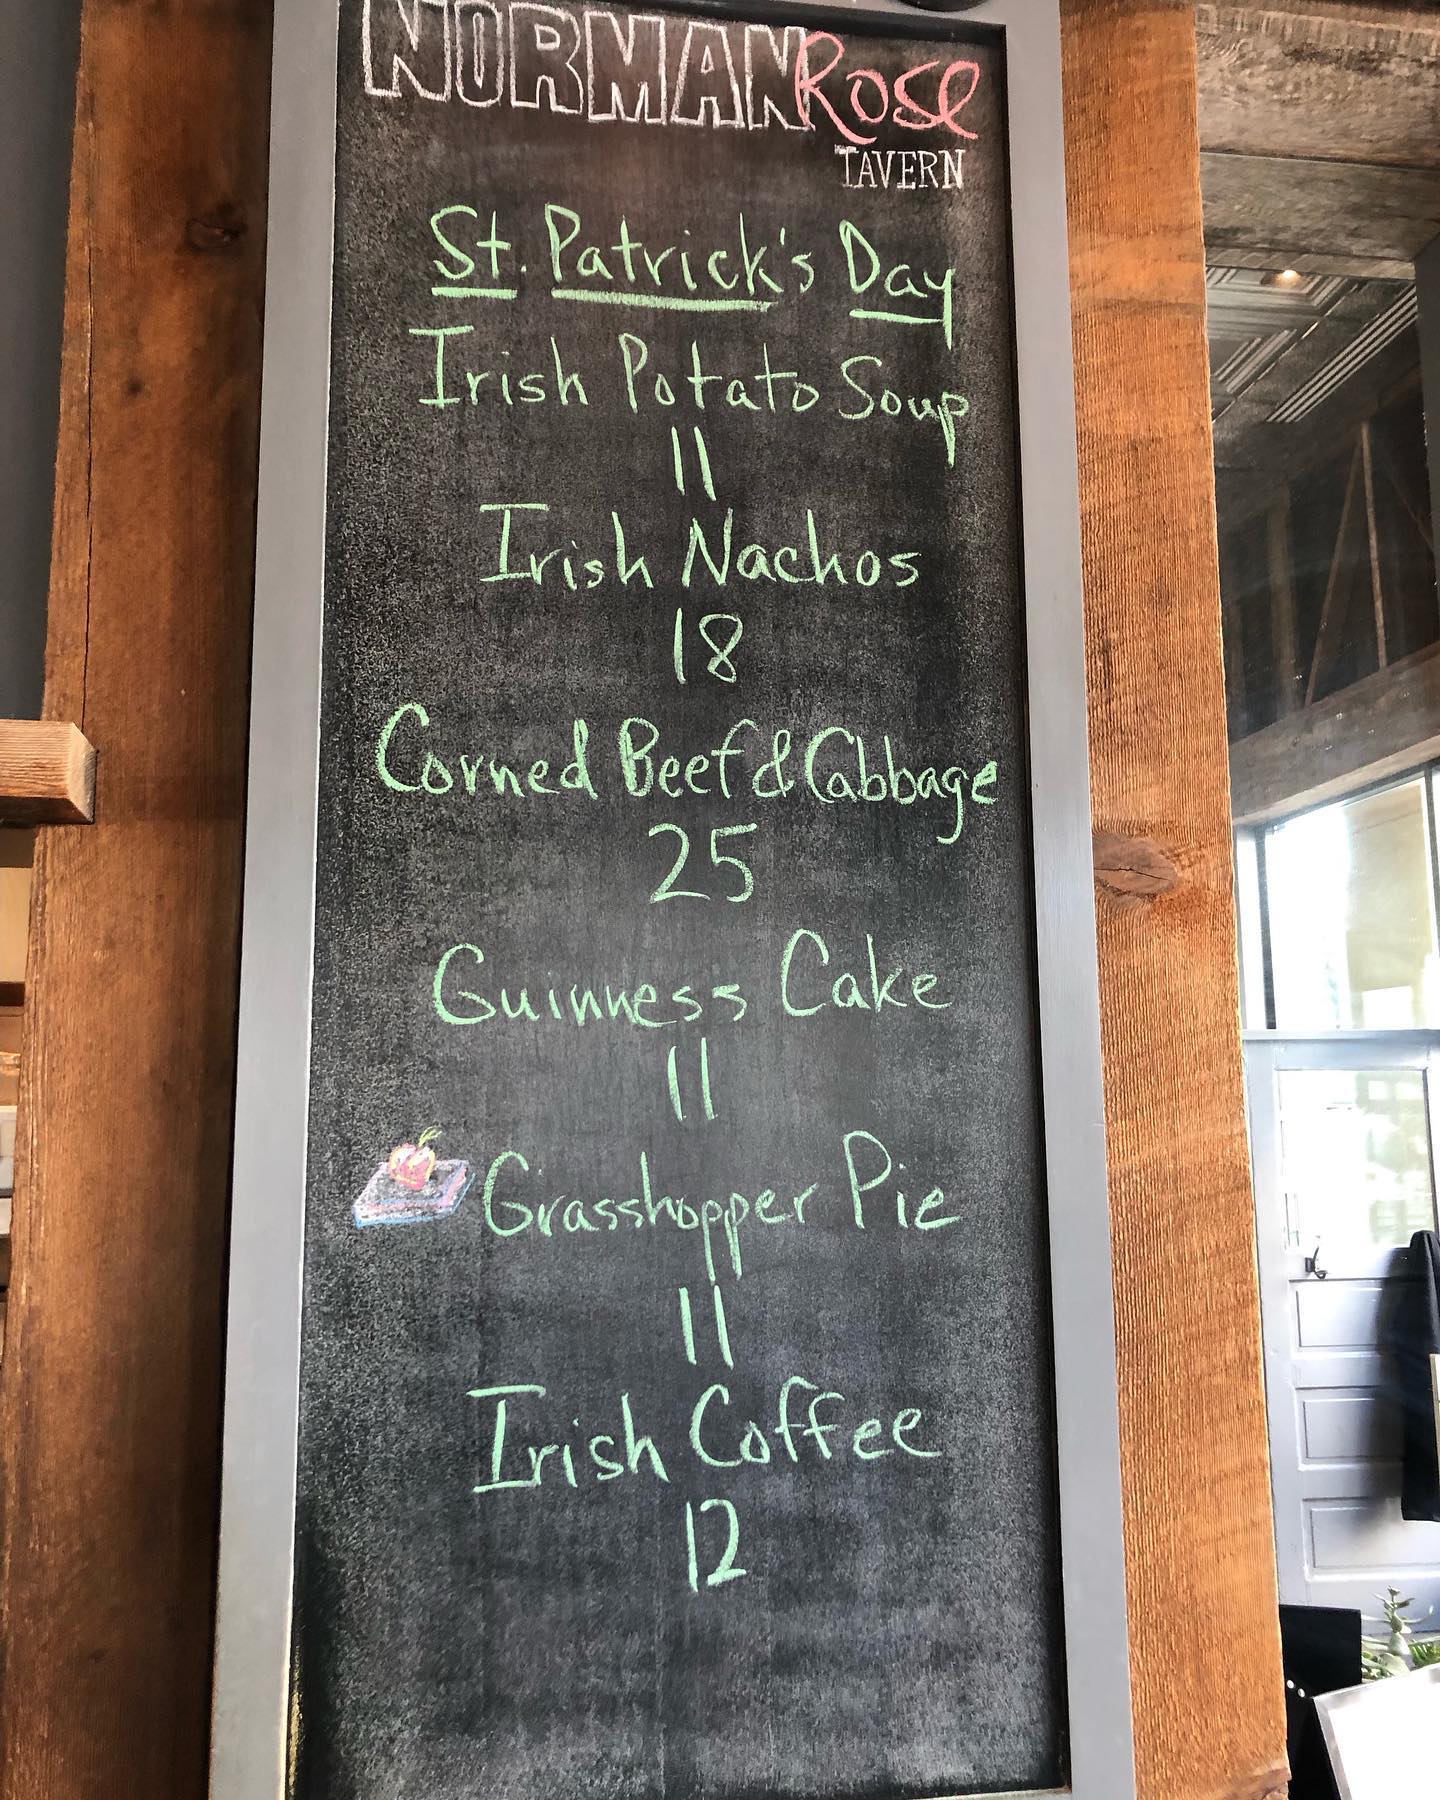 NORMAN Rose
TAVERN
St. Patrick's Day
Irish Potato Soup
11
Irish Nachos
18
Corned Beef & Cabbage
25
Guinness Cake
11
Grasshopper Pie
11
Irish Coffee
12